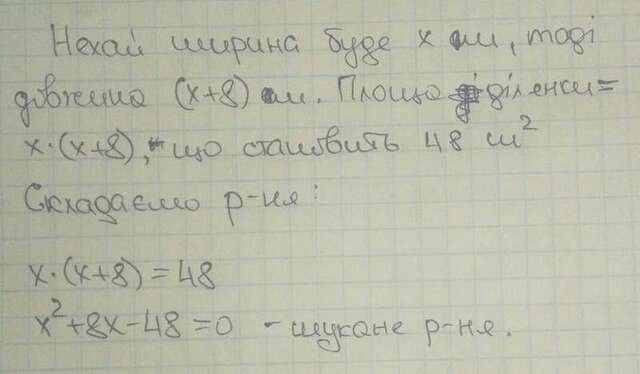 Нехай ширина буде x м, тоді
довжина (x+8) м. Площа ділянки=
x·(x+8), що становить 48 м²
Складаємо р-ня:
x·(x+8)=48
x²+8x-48=0 - шукане р-ня.